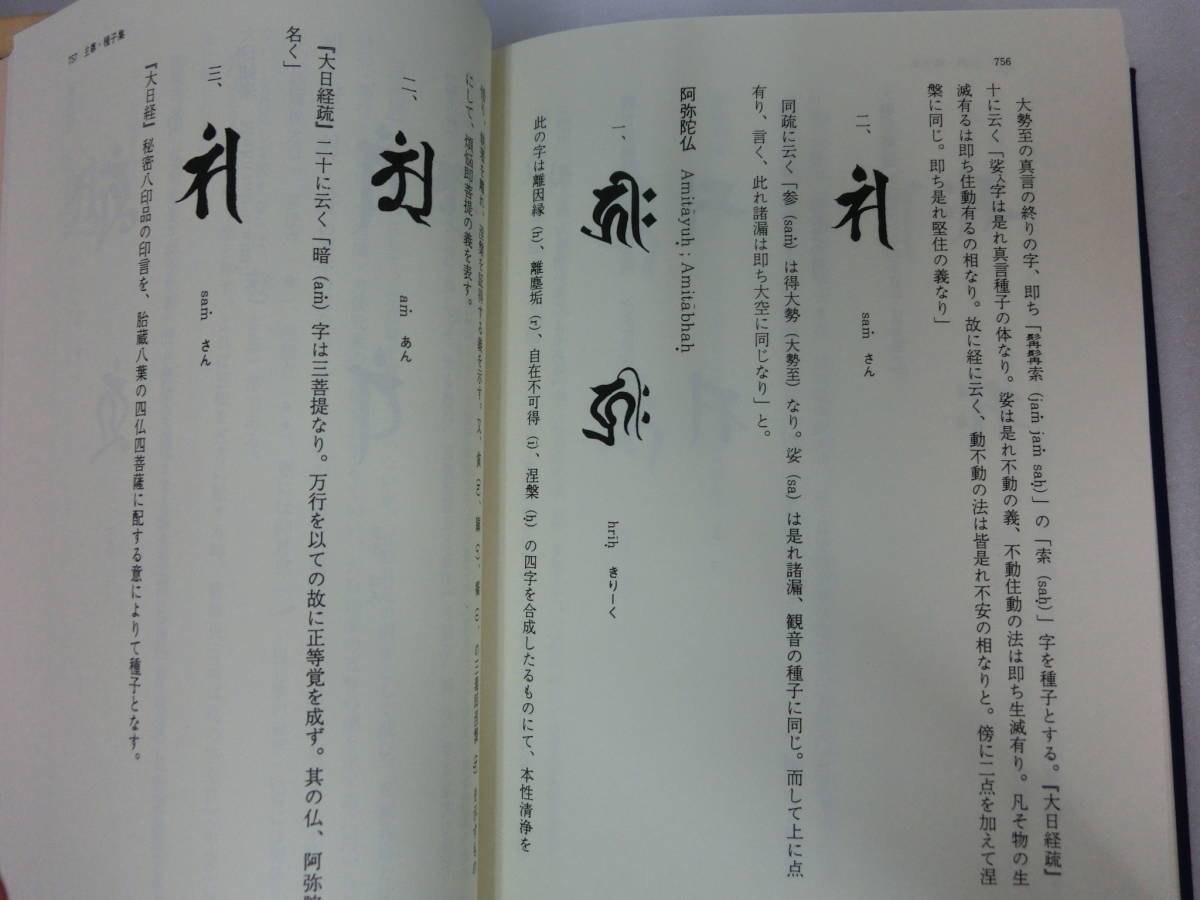 756
大勢至の真言の終りの字、即ち「髯髯索（jaṁ jaṁ saḥ）」の「索（saḥ）」字を種子とする。『大日経疏』
十に云く「娑字は是れ真言種子の体なり。娑は是れ不動の義、不動住動の法は即ち生滅有り。凡そ物の生
滅有るは即ち住動有るの相なり。故に経に云く、動不動の法は皆是れ不安の相なりと。傍に二点を加えて涅
槃に同じ。即ち是れ堅住の義なり」
二、 saṁ さん
同疏に云く「参（saṁ）は得大勢（大勢至）なり。娑（sa）は是れ諸漏、観音の種子に同じ。而して上に点
有り、言く、此れ諸漏は即ち大空に同じなり」と。
阿弥陀仏 Amitāyuḥ ; Amitābhaḥ
一、 hrīḥ きりーく
此の字は離因縁（h）、離塵垢（r）、自在不可得（ī）、涅槃（ḥ）の四字を合成したるものにて、本性清浄を
757 主尊・種子集
にして、煩悩即菩提の義を表す。
二、 aṁ あん
『大日経疏』二十に云く「暗（aṁ）字は三菩提なり。万行を以ての故に正等覚を成ず。其の仏、阿弥陀
名く」
三、 saṁ さん
『大日経』秘密八印品の印言を、胎蔵八葉の四仏四菩薩に配する意によりて種子となす。